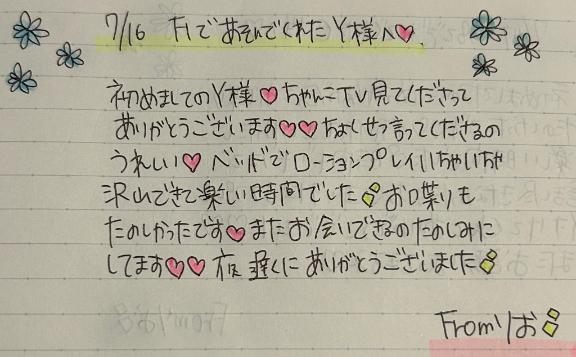 7/16 F1であそんでくれたY様へ♡
初めましてのY様♡ちゃんこTV見てくださって
ありがとうございます♡♡ちょくせつ言ってくださるの
うれしい♡ベッドでローションプレイいちゃいちゃ
沢山できて楽しい時間でした お口葉りも
たのしかったです♡またお会いできるのたのしみに
してます♡♡夜遅くにありがとうございました
Fromりお